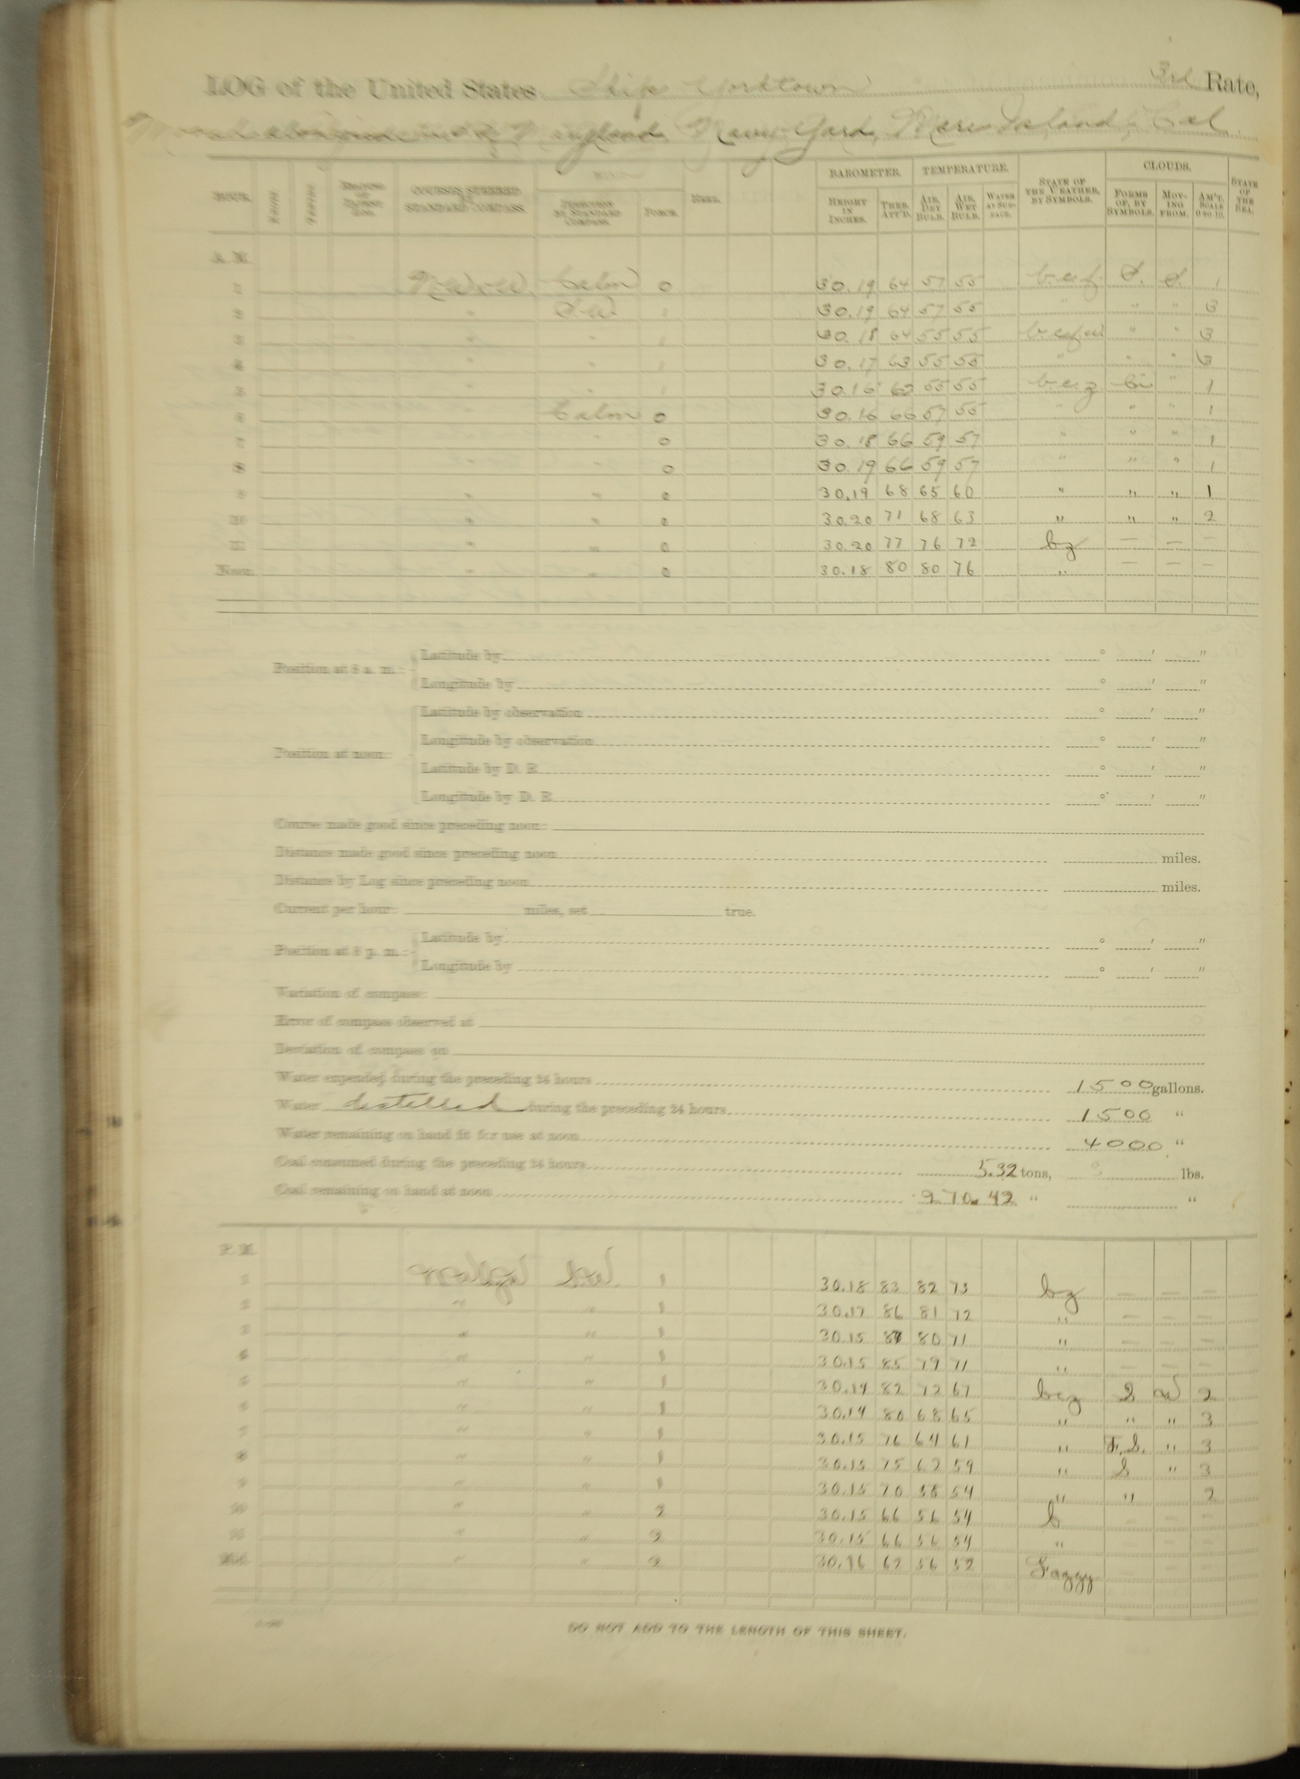 LOG of the United States Ship Yorktown 3rd Rate,
Navy Yard, Mare Island, Cal
HOUR. KNOTS. TENTHS. COURSES STEERED BY STANDARD COMPASS. WIND. DIRECTION BY STANDARD COMPASS. FORCE. HEEL. BAROMETER. HEIGHT IN INCHES. THER. ATT'D. TEMPERATURE. AIR, DRY BULB. AIR, WET BULB. WATER AT SURFACE. STATE OF THE WEATHER, BY SYMBOLS. CLOUDS. FORMS OF, BY SYMBOLS. MOVING FROM. AM'T. SCALE 0 TO 10. STATE OF THE SEA.
A. M.
1 Calm 0 30.19 64 57 55 S. S. 1
2 " S.W 1 30.19 64 57 55 " " " 3
3 " " 1 30.18 64 55 55 " " 3
4 " " 1 30.17 63 55 55 " " " 3
5 " " 1 30.16 62 55 55 b.c.z " 1
6 Calm 0 30.16 66 57 55 " " " 1
7 " " 0 30.18 66 59 57 " " " 1
8 " " 0 30.19 66 59 57 " " " 1
9 " " 0 30.19 68 65 60 " " " 1
10 " " 0 30.20 71 68 63 " " " 2
11 " " 0 30.20 77 76 72 bz — — —
Noon. " " 0 30.18 80 80 76 " — — —
Position at 8 a. m.: Latitude by ° ′ ″
Longitude by ° ′ ″
Latitude by observation ° ′ ″
Position at noon: Longitude by observation ° ′ ″
Latitude by D. R. ° ′ ″
Longitude by D. R. ° ′ ″
Course made good since preceding noon:
Distance made good since preceding noon miles.
Distance by Log since preceding noon miles.
Current per hour: miles, set true.
Position at 8 p. m.: Latitude by ° ′ ″
Longitude by ° ′ ″
Variation of compass:
Error of compass observed at
Deviation of compass on
Water expended during the preceding 24 hours 1500 gallons.
Water distilled during the preceding 24 hours 1500 "
Water remaining on hand fit for use at noon 4000 "
Coal consumed during the preceding 24 hours 5.32 tons, lbs.
Coal remaining on hand at noon 970.42 " "
P. M.
1 1 30.18 83 82 73 bz — — —
2 " " 1 30.17 86 81 72 " — — —
3 " " 1 30.15 80 71 " — — —
4 " " 1 30.15 85 79 71 " — — —
5 " " 1 30.14 82 72 67 bcz S W 2
6 " " 1 30.14 80 68 65 " " " 3
7 " " 1 30.15 76 64 61 " F.S. " 3
8 " " 1 30.15 75 62 59 " S " 3
9 " " 1 30.15 70 58 54 " " 2
10 " " 2 30.15 66 56 54 b — — —
11 " " 2 30.15 66 56 54 " — — —
Mid. " " 2 30.16 62 56 52 Foggy
DO NOT ADD TO THE LENGTH OF THIS SHEET.